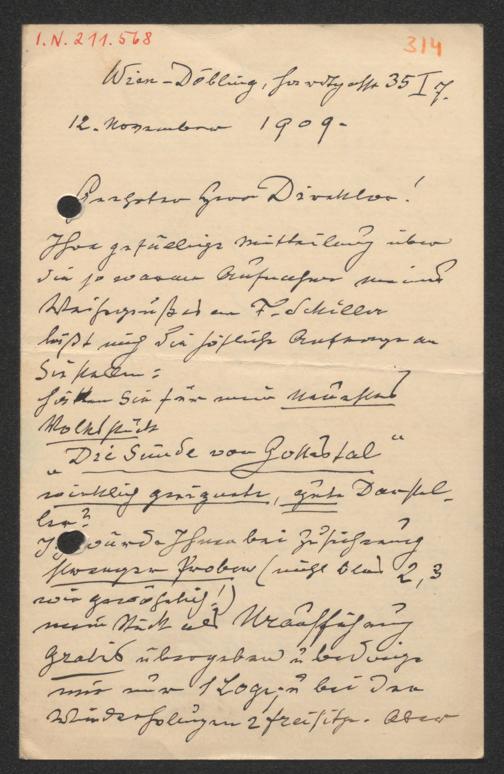 I.N. 211.568
314
Wien-Döbling, 35 I 7.
12. November 1909.
Geehrter Herr Direktor!
Ihre gefällige Mitteilung über
die so warme Aufnahme meines
Weihegrußes an F. Schiller
läßt mich die höfliche Anfrage an
Sie stellen:
hätten Sie für mein neuestes
Volksstück
„Die Sünde von Gottestal“
wirklich geeignete, gute Darstel-
ler?
Ich würde Ihnen bei Zusicherung
strenger Proben (nicht bloß 2, 3
wie gewöhnlich!)
mein Stück als Uraufführung
gratis übergeben u bedinge
mir nur 1 Loge u bei den
Wiederholungen 2 Freisitze. Aber